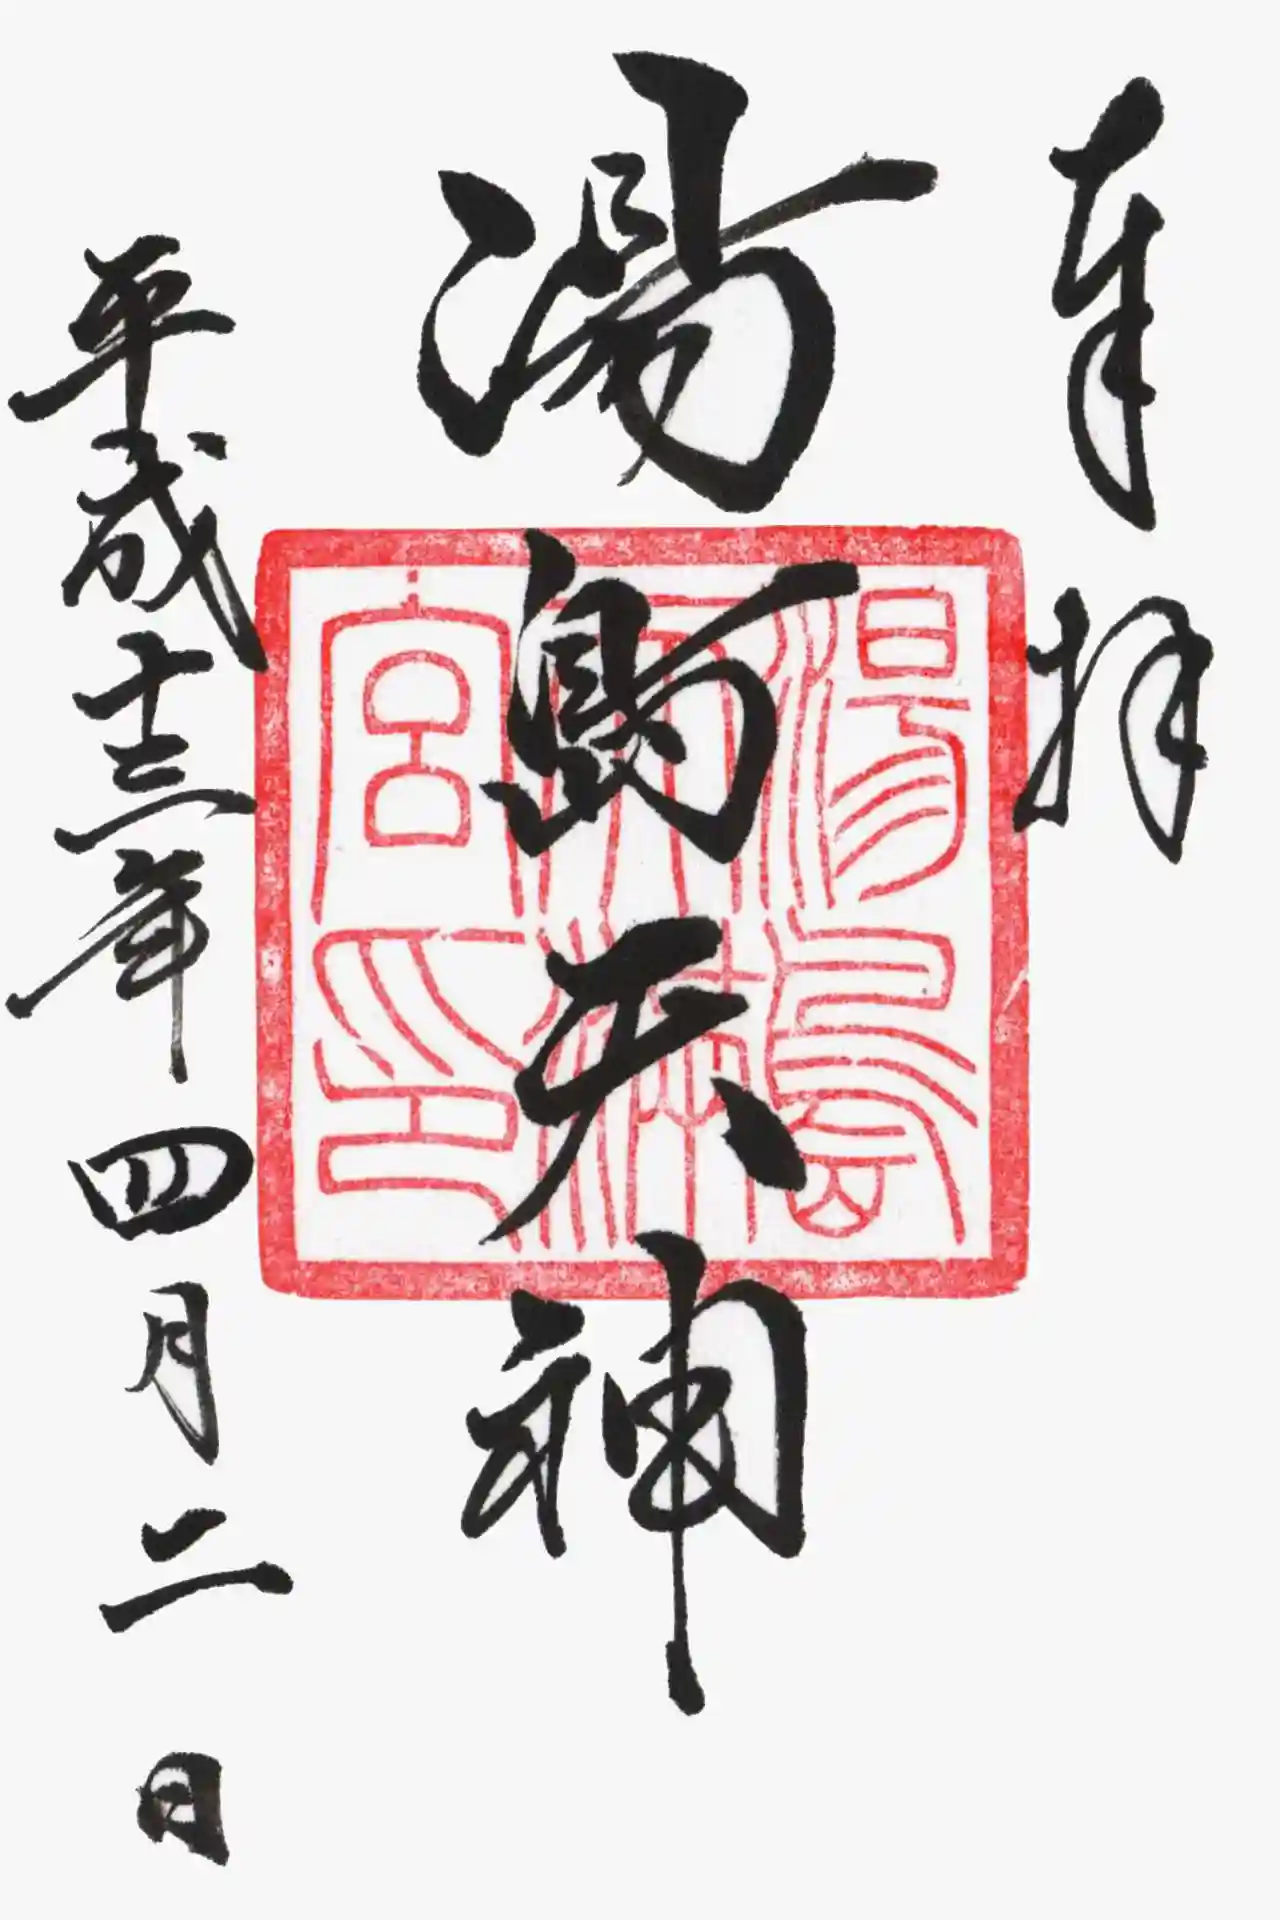 奉拝
湯島天神
平成十三年四月二日
湯島
天満
宮印